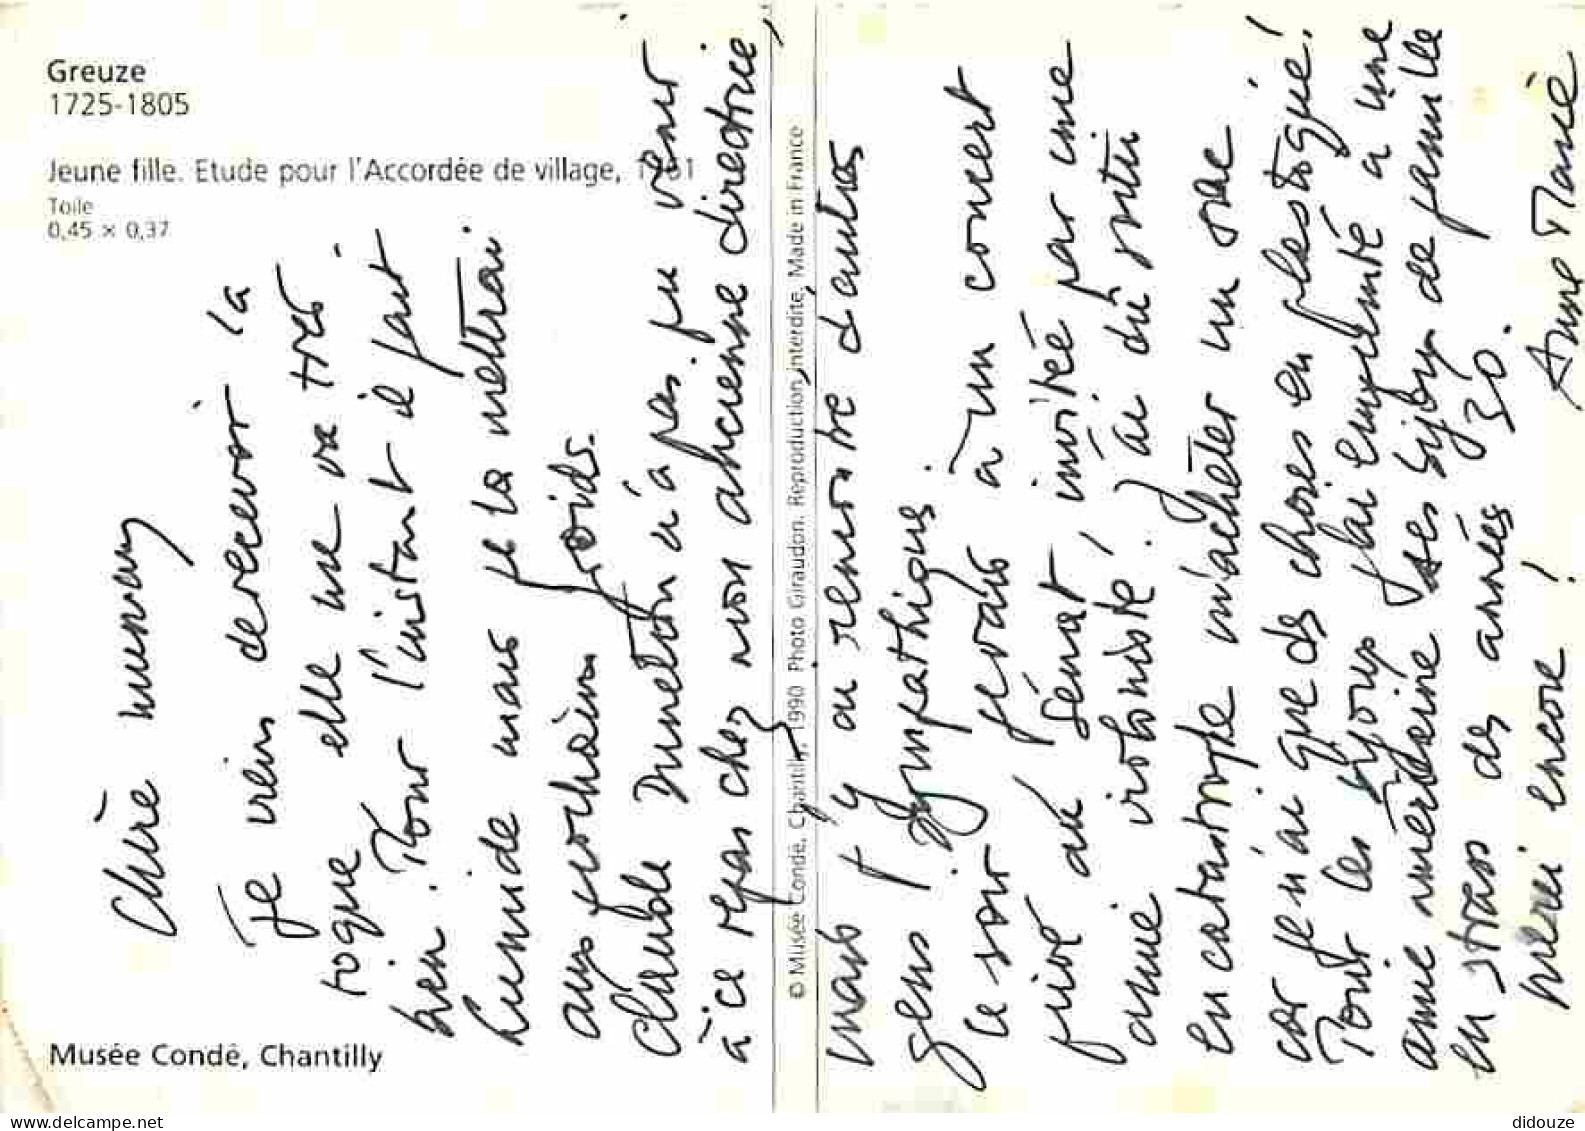 Greuze
1725-1805
Jeune fille. Etude pour l'Accordée de village, 1761
Toile
0,45 x 0,37
Musée Condé, Chantilly
© Musée Condé, Chantilly, 1990 Photo Giraudon. Reproduction interdite. Made in France
Chère
Je viens de recevoir la
toque elle me va très
bien. Pour l'instant il fait
humide mais je la mettrai
aux prochains froids.
Claude n'a pas pu venir
à ce repas chez mon ancienne directrice,
mais j'y ai rencontré d'autres
gens sympathiques.
Ce soir je vais à un concert
privé au Sénat, invitée par une
amie violoniste, j'ai dû sortir
en catastrophe m'acheter un sac
car je n'ai que des choses en plastique!
Pour les bijoux j'ai emprunté à une
amie américaine ses bijoux de famille
en strass des années 30.
Merci encore! Anne Marie
didouze